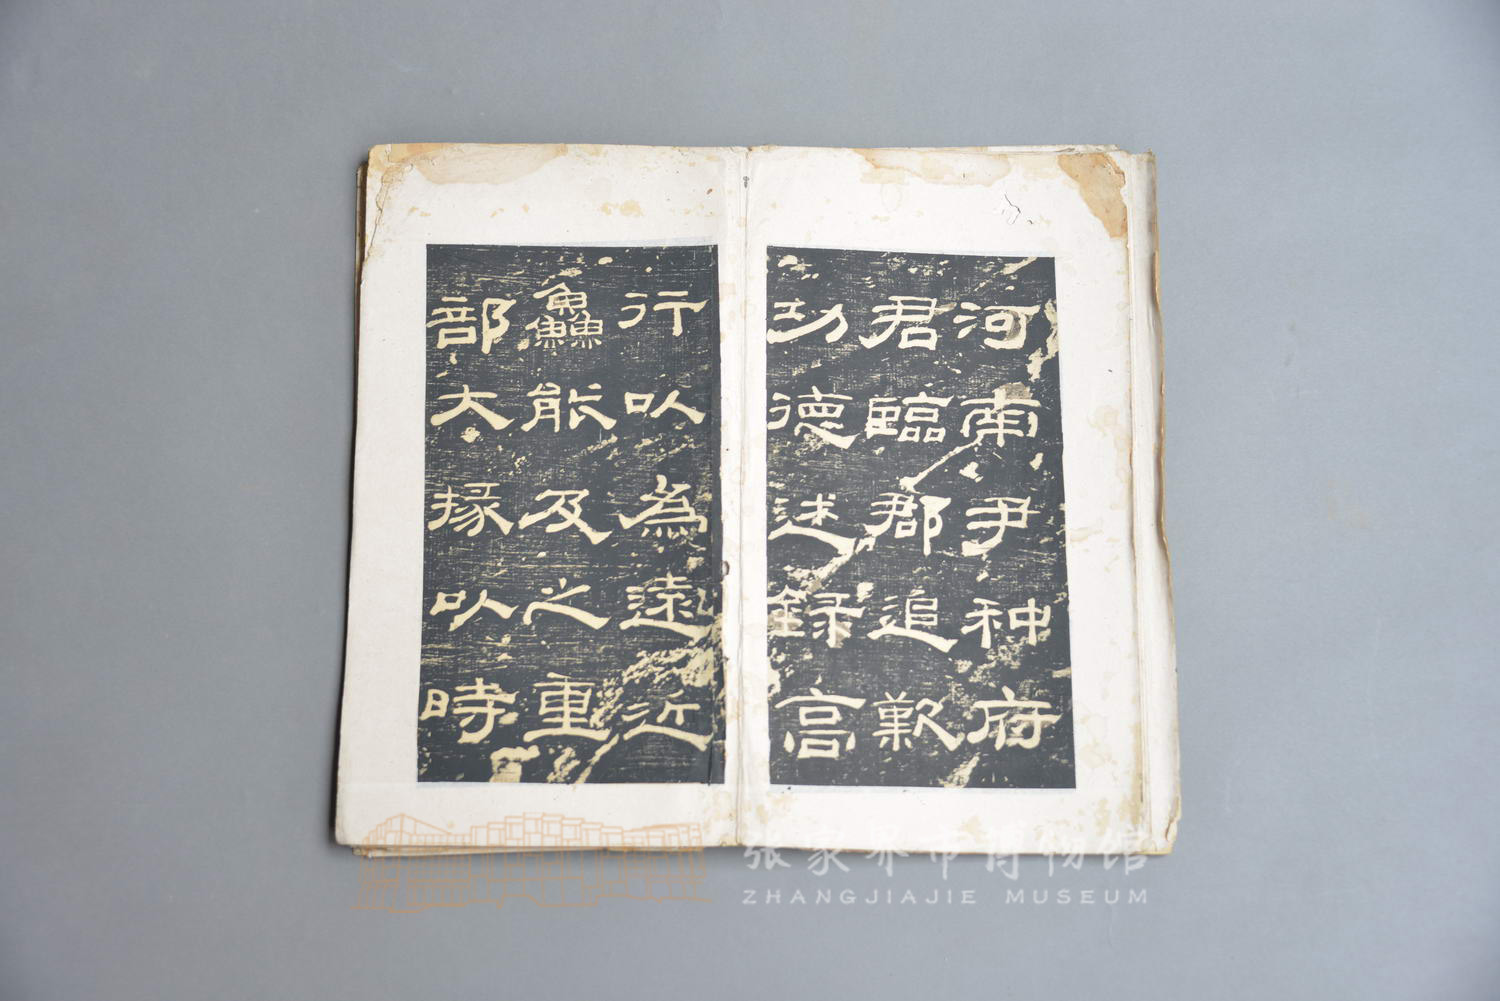 河南尹种府
君臨郡追歎
功德述録高
行以為遠近
鱻能及之重
部大掾以時
张家界市博物馆
ZHANGJIAJIE MUSEUM